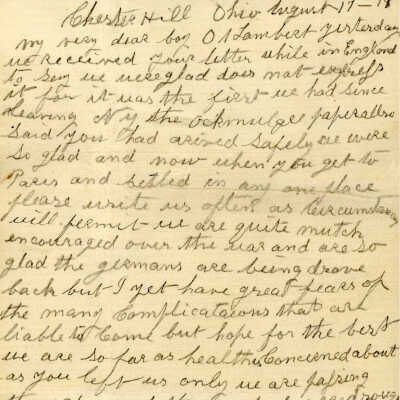 Chester Hill Ohio August 17-18
my very dear boy O Lambert yesterday
we received your letter while in England
to say we were glad does not express
it for it was the first we had since
Leaving N Y the Ockmulgee paper also
said you had arived safely we were
so glad and now when you get to
Paris and settled in any one place
please write us often as circumstances
will permit we are quite mutch
encouraged over the war and are so
glad the germans are being drove
back but I yet have great fears of
the many complicataions that are
liable to come but hope for the best
we are so far as health is concerned about
as you left us only we are passing